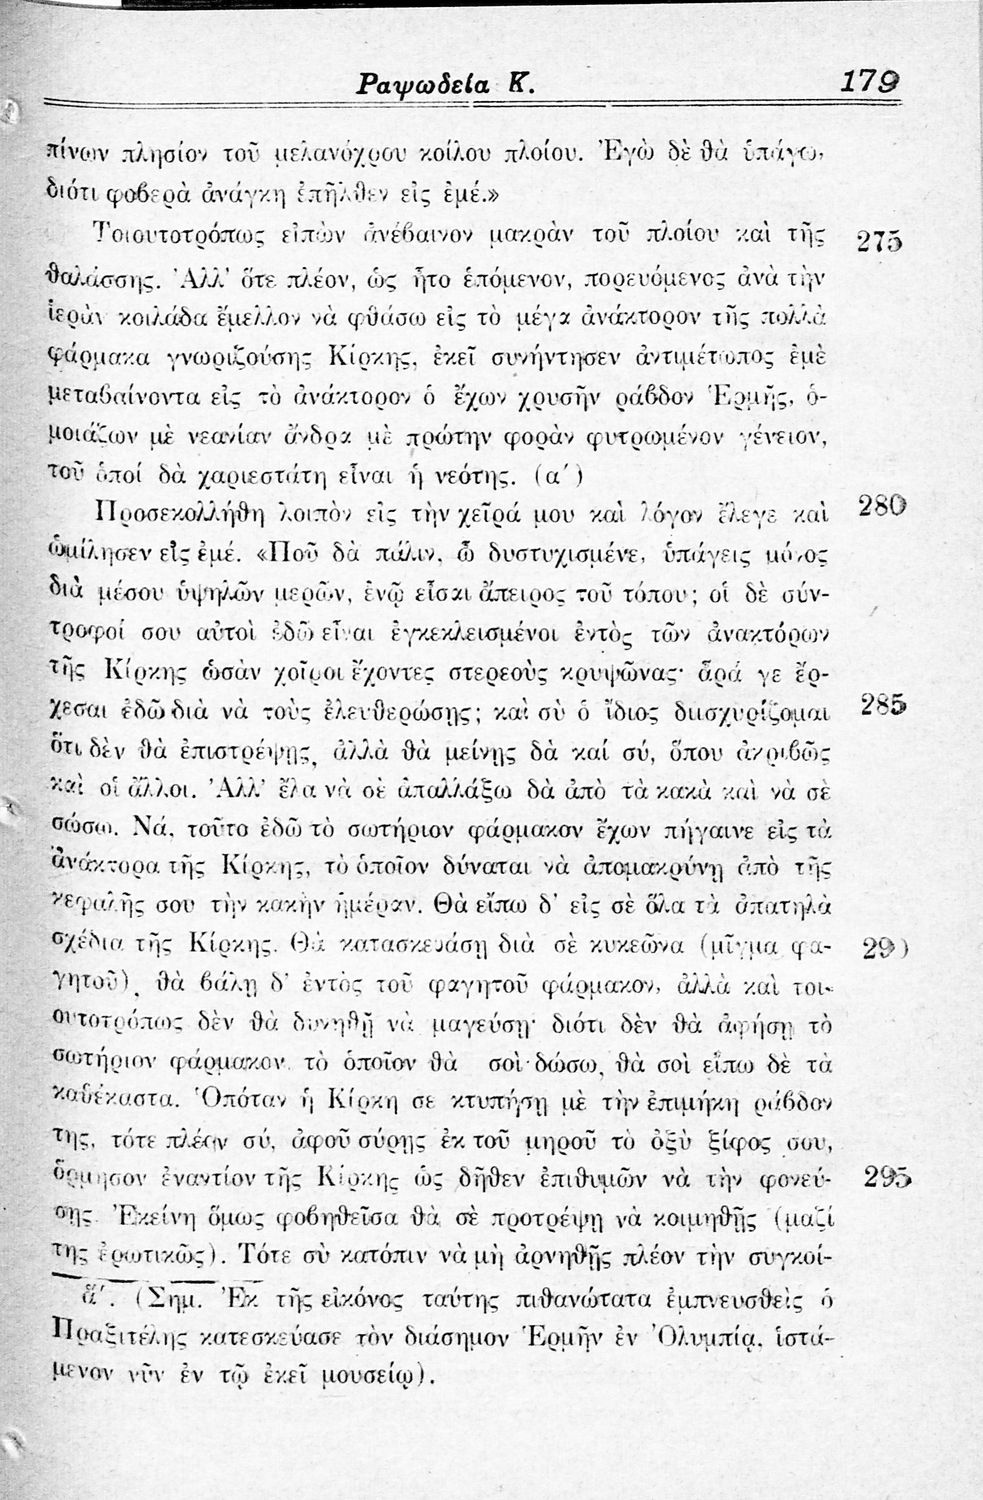 Ραψωδεία Κ. 179
πίνων πλησίον τοῦ μελανόχρου κοίλου πλοίου. Ἐγὼ δὲ θὰ ὑπάγω,
διότι φοβερὰ ἀνάγκη ἐπῆλθεν εἰς ἐμέ.»
Τοιουτοτρόπως εἰπὼν ἀνέβαινον μακρὰν τοῦ πλοίου καὶ τῆς 275
θαλάσσης. Ἀλλ' ὅτε πλέον, ὡς ἦτο ἑπόμενον, πορευόμενος ἀνὰ τὴν
ἱερὰν κοιλάδα ἔμελλον νὰ φθάσω εἰς τὸ μέγα ἀνάκτορον τῆς πολλὰ
φάρμακα γνωριζούσης Κίρκης, ἐκεῖ συνήντησεν ἀντιμέτωπος ἐμὲ
μεταβαίνοντα εἰς τὸ ἀνάκτορον ὁ ἔχων χρυσῆν ράβδον Ἑρμῆς, ὁ-
μοιάζων μὲ νεανίαν ἄνδρα μὲ πρώτην φορὰν φυτρωμένον γένειον,
τοῦ ὁποί δὰ χαριεστάτη εἶναι ἡ νεότης. (α')
Προσεκολλήθη λοιπὸν εἰς τὴν χεῖρά μου καὶ λόγον ἔλεγε καὶ 280
ὡμίλησεν εἰς ἐμέ. «Ποῦ δὰ πάλιν, ὦ δυστυχισμένε, ὑπάγεις μόνος
διὰ μέσου ὑψηλῶν μερῶν, ἐνῷ εἶσαι ἄπειρος τοῦ τόπου; οἱ δὲ σύν-
τροφοί σου αὐτοὶ ἐδῶ εἶναι ἐγκεκλεισμένοι ἐντὸς τῶν ἀνακτόρων
τῆς Κίρκης ὡσὰν χοῖροι ἔχοντες στερεοὺς κρυψῶνας· ἆρά γε ἔρ-
χεσαι ἐδῶ διὰ νὰ τοὺς ἐλευθερώσῃς; καὶ σὺ ὁ ἴδιος διισχυρίζομαι 285
ὅτι δὲν θὰ ἐπιστρέψῃς, ἀλλὰ θὰ μείνῃς δὰ καί σύ, ὅπου ἀκριβῶς
καὶ οἱ ἄλλοι. Ἀλλ' ἔλα νὰ σὲ ἀπαλλάξω δὰ ἀπὸ τὰ κακὰ καὶ νὰ σὲ
σώσω. Νά, τοῦτο ἐδῶ τὸ σωτήριον φάρμακον ἔχων πήγαινε εἰς τὰ
ἀνάκτορα τῆς Κίρκης, τὸ ὁποῖον δύναται νὰ ἀπομακρύνῃ ἀπὸ τῆς
κεφαλῆς σου τὴν κακὴν ἡμέραν. Θὰ εἴπω δ' εἰς σὲ ὅλα τὰ ἀπατηλὰ
σχέδια τῆς Κίρκης. Θὰ κατασκευάσῃ διὰ σὲ κυκεῶνα (μῖγμα φα- 29)
γητοῦ), θὰ βάλῃ δ' ἐντὸς τοῦ φαγητοῦ φάρμακον, ἀλλὰ καὶ τοι-
ουτοτρόπως δὲν θὰ δυνηθῇ νὰ μαγεύσῃ· διότι δὲν θὰ ἀφήσῃ τὸ
σωτήριον φάρμακον, τὸ ὁποῖον θὰ σοὶ δώσω, θὰ σοὶ εἴπω δὲ τὰ
καθέκαστα. Ὁπόταν ἡ Κίρκη σε κτυπήσῃ μὲ τὴν ἐπιμήκη ράβδον
της, τότε πλέον σύ, ἀφοῦ σύρῃς ἐκ τοῦ μηροῦ τὸ ὀξὺ ξίφος σου,
ὅρμησον ἐναντίον τῆς Κίρκης ὡς δῆθεν ἐπιθυμῶν νὰ τὴν φονεύ- 295
σῃς. Ἐκείνη ὅμως φοβηθεῖσα θὰ σὲ προτρέψῃ νὰ κοιμηθῇς (μαζί
της ἐρωτικῶς). Τότε σὺ κατόπιν νὰ μὴ ἀρνηθῇς πλέον τὴν συγκοί-
α'. (Σημ. Ἐκ τῆς εἰκόνος ταύτης πιθανώτατα ἐμπνευσθεὶς ὁ
Πραξιτέλης κατεσκεύασε τὸν διάσημον Ἑρμῆν ἐν Ὀλυμπίᾳ, ἱστά-
μενον νῦν ἐν τῷ ἐκεῖ μουσείῳ).